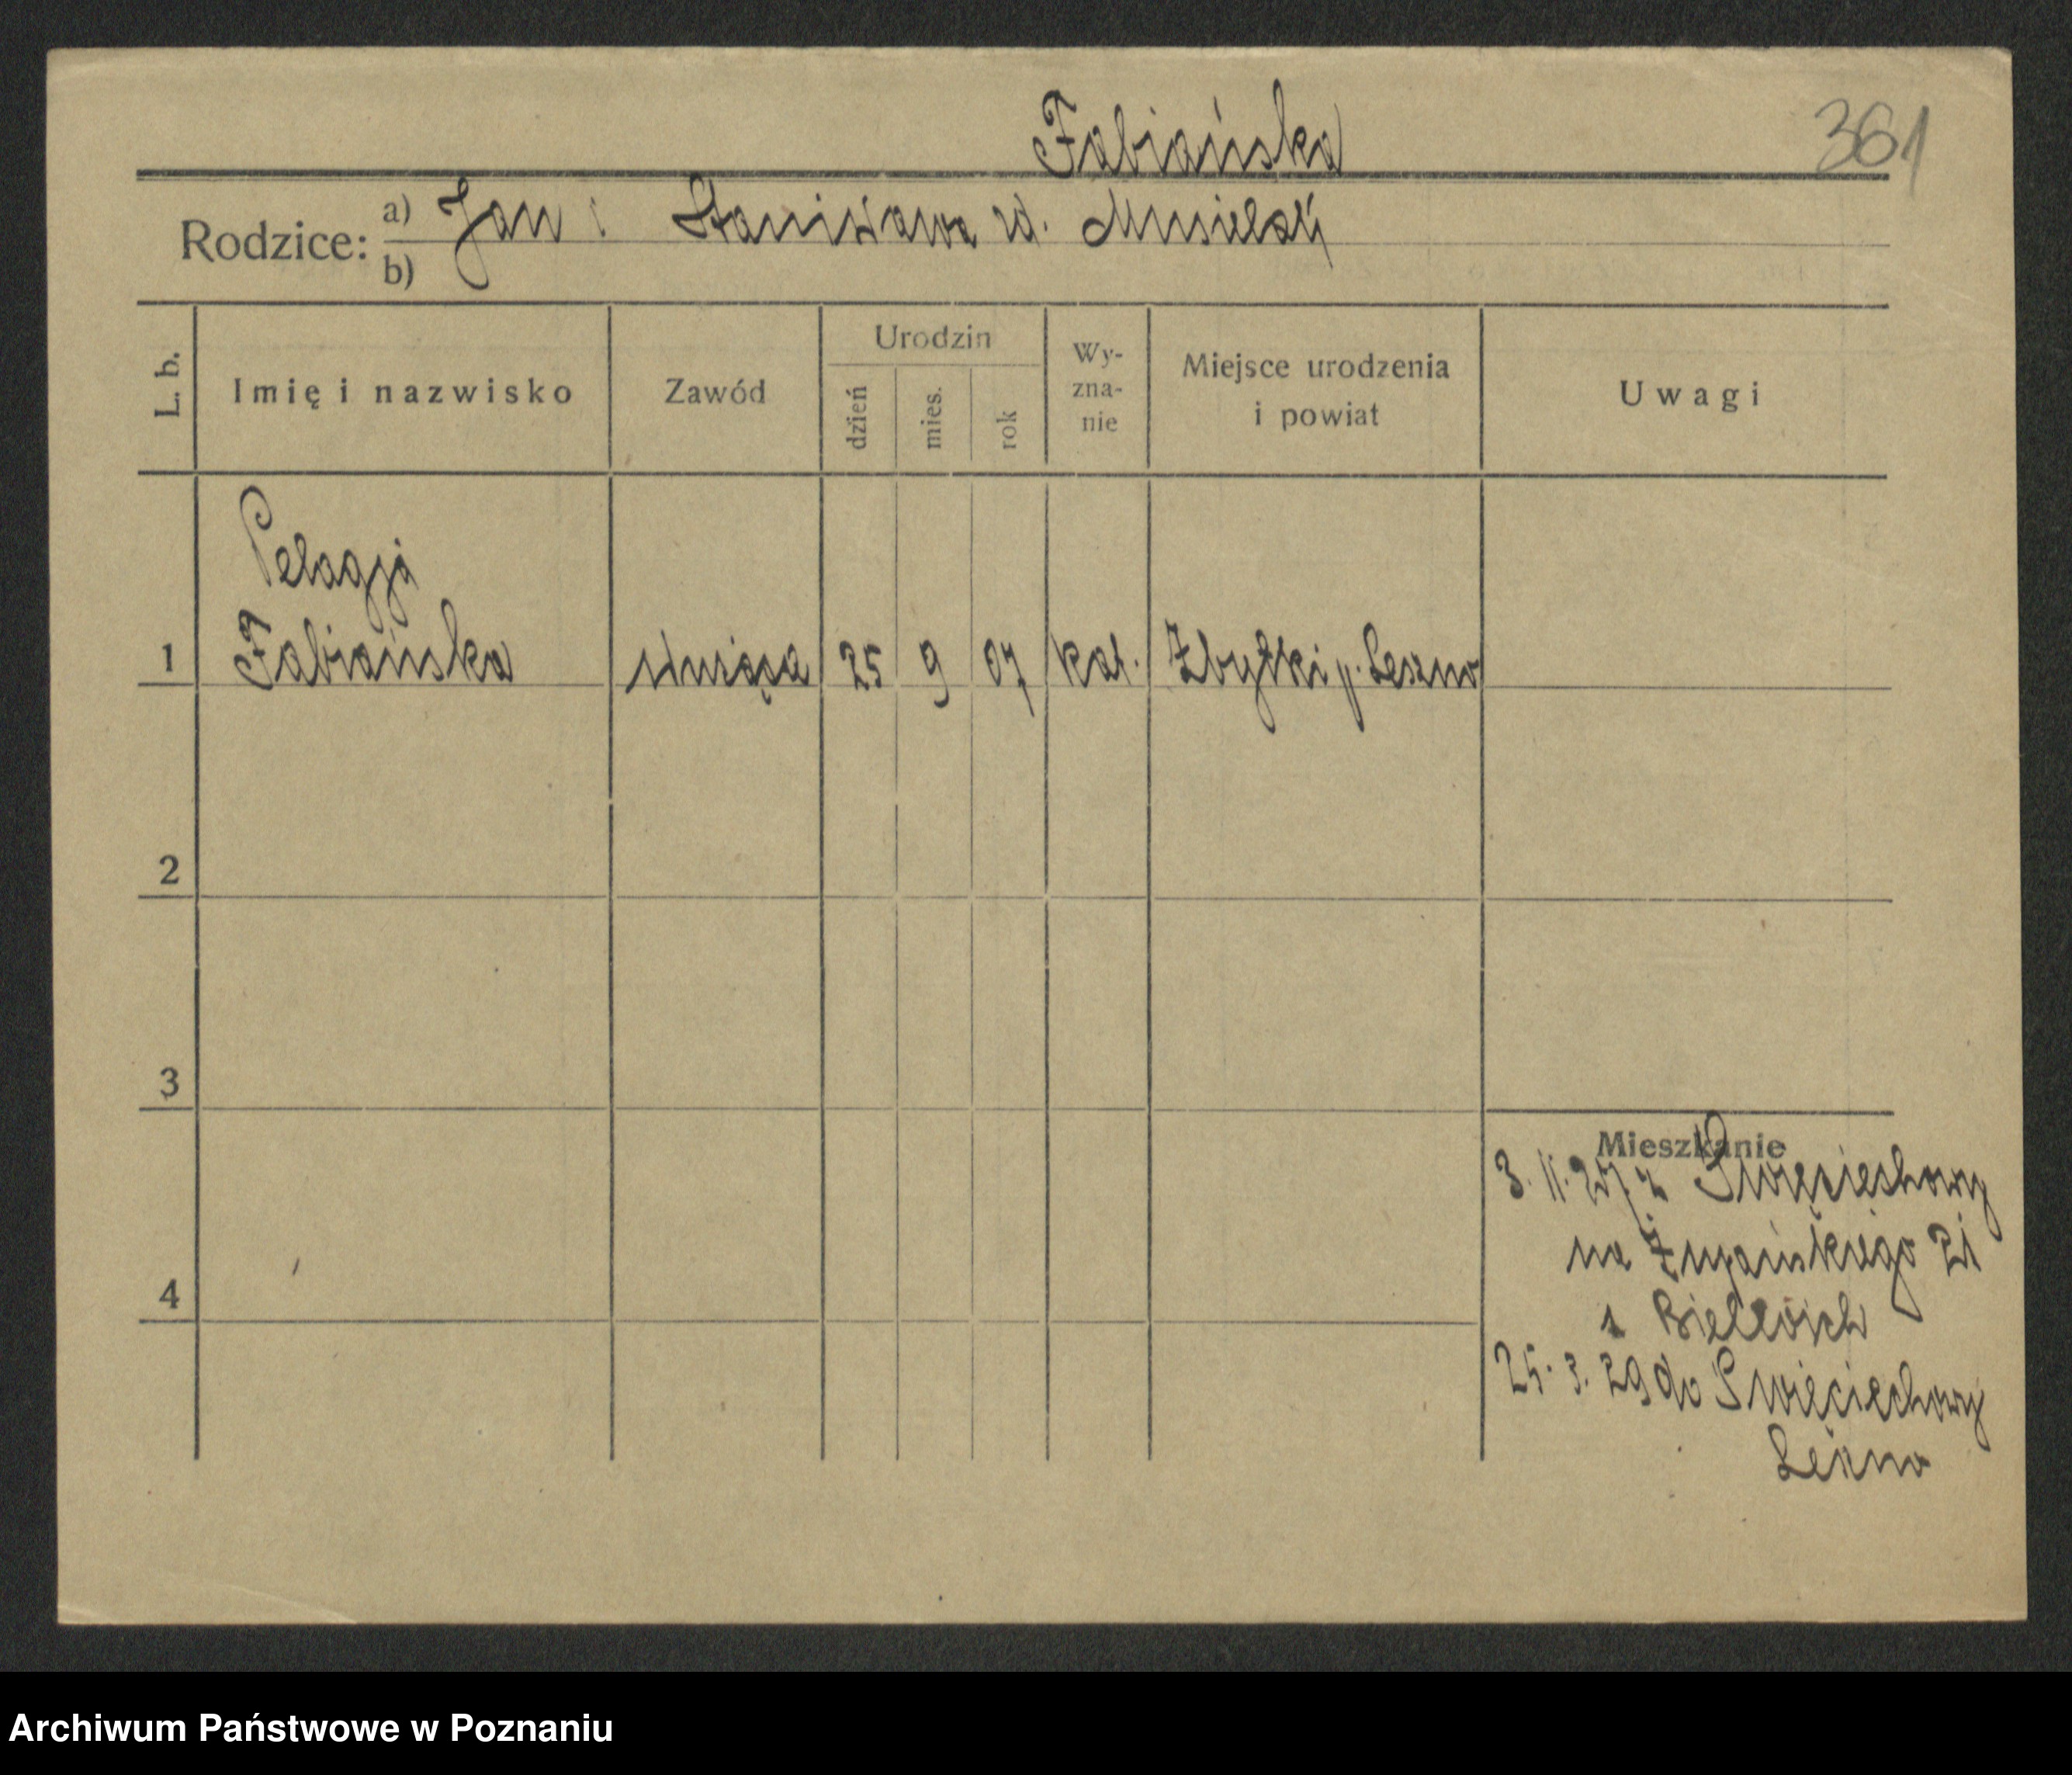 Fabiańska
361
Rodzice: a) Jan i Stanisława rd. Musielak
b)
L. b.
Imię i nazwisko
Zawód
Urodzin
dzień
mies.
rok
Wy-
zna-
nie
Miejsce urodzenia
i powiat
Uwagi
Pelagja
1 Fabiańska służąca 25 9 07 kat. Zbytki p. Leszno
2
3
Mieszkanie
3. 11. 27 z Święciechowy
na Żupańskiego 21
4
25. 3. 29 do Święciechowy
Leszno
Archiwum Państwowe w Poznaniu